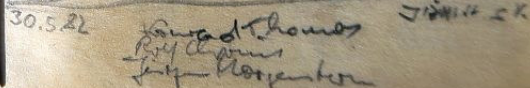 30.5.82
Konrad Thomas
Rolf
Jürgen Morgenstern